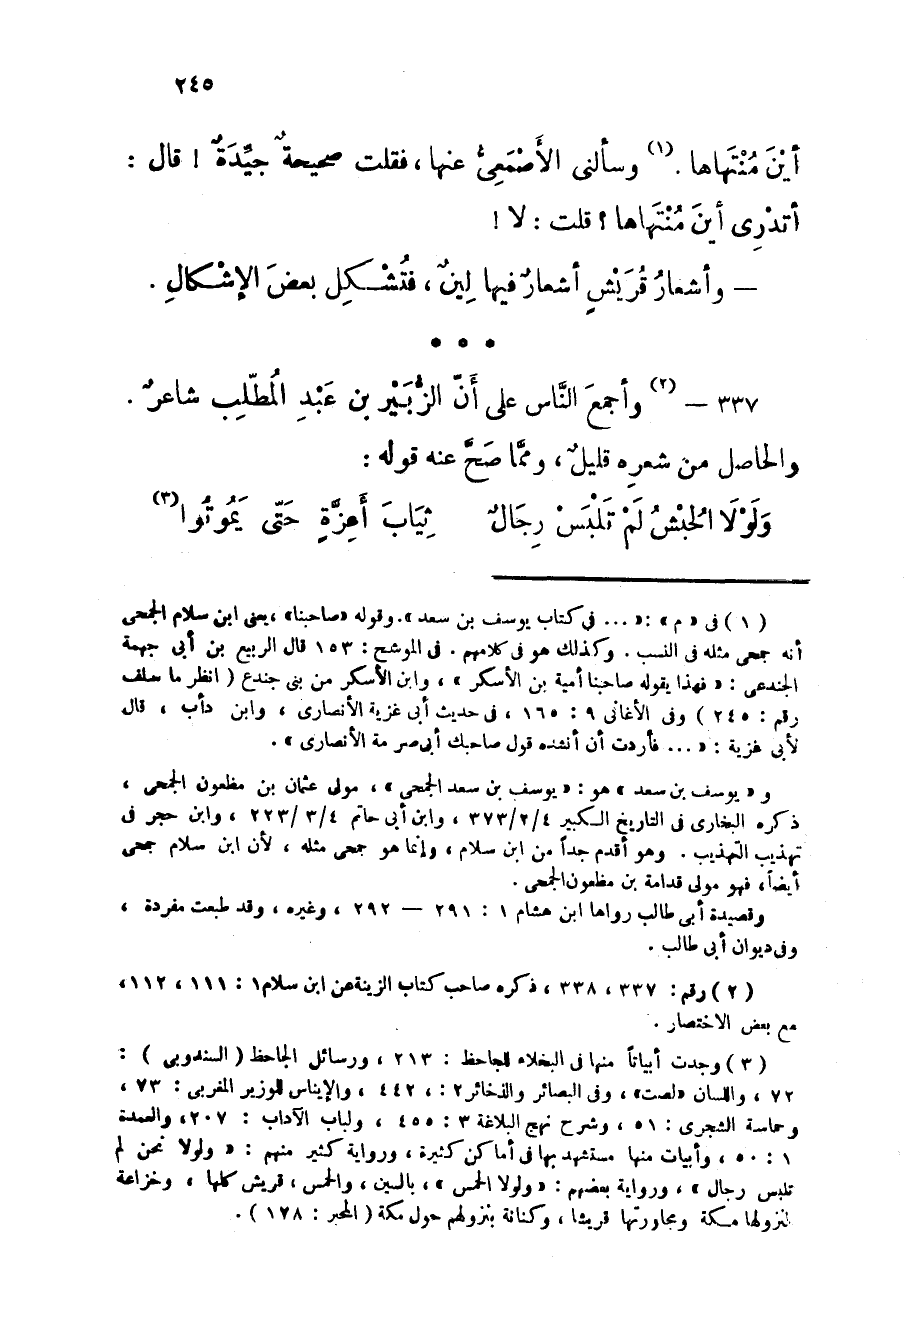 ٢٤٥
أيْنَ مُنْتَهاها .(١) وسألنى الأَصْمَعِىُّ عنها ، فقلت صحيحةٌ جيِّدَةٌ ! قال :
أتدْرِى أينَ مُنْتَهاها ؟ قلت : لا !
— وأشعارُ قُرَيْشٍ أشعارٌ فيها لِينٌ ، فتُشْكِل بعضَ الإشْكالِ .
• • •
٣٣٧ — (٢) وأجمعَ النَّاس على أَنّ الزُّبَيْر بن عَبْدِ المُطّلِب شاعرٌ .
والحاصل من شعره قليلٌ ، وممَّا صَحَّ عنه قوله :
وَلَوْلَا الحُبْشُ لَمْ تَلْبَسْ رِجَالٌ ثِيَابَ أَعِزَّةٍ حَتّى يَمُوتُوا(٣)
( ١ ) فى « م » : « ... فى كتاب يوسف بن سعد » . وقوله « صاحبنا » ، يعنى ابن سلام الجمحى
أنه جمحى مثله فى النسب . وكذلك هو فى كلامهم . فى الموشح : ١٥٣ قال الربيع بن أبى جهمة
الجندعى : « فهذا يقوله صاحبنا أمية بن الأسكر » ، وابن الأسكر من بنى جندع ( انظر ما سلف
رقم : ٢٤٥ ) وفى الأغانى ٩ : ١٦٥ ، فى حديث أبى غزية الأنصارى ، وابن دأب ، قال
لأبى غزية : « ... فأردت أن أنشده قول صاحبك أبى صرمة الأنصارى » .
و « يوسف بن سعد » هو : « يوسف بن سعد الجمحى » ، مولى عثمان بن مظعون الجمحى ،
ذكره البخارى فى التاريخ الكبير ٣٧٣/٢/٤ ، وابن أبى حاتم ٢٢٣/٣/٤ ، وابن حجر فى
تهذيب التهذيب . وهو أقدم جداً من ابن سلام ، وإنما هو جمحى مثله ، لأن ابن سلام جمحى
أيضاً ، فهو مولى قدامة بن مظعون الجمحى .
وقصيدة أبى طالب رواها ابن هشام ١ : ٢٩١ — ٢٩٢ ، وغيره ، وقد طبعت مفردة ،
وفى ديوان أبى طالب .
( ٢ ) رقم : ٣٣٧ ، ٣٣٨ ، ذكره صاحب كتاب الزينة عن ابن سلام ١ : ١١١ ، ١١٢ ،
مع بعض الاختصار .
( ٣ ) وجدت أبياتاً منها فى البخلاء للجاحظ : ٢١٣ ، ورسائل الجاحظ ( السندوبى ) :
٧٢ ، واللسان « لصت » ، وفى البصائر والذخائر ٢ : ، ٤٤٢ ، والإيناس للوزير المغربى : ٧٣ ،
وحماسة الشجرى : ٥١ ، وشرح نهج البلاغة ٣ : ٤٥٥ ، ولباب الآداب : ٢٠٧ ، والعمدة
١ : ٥٠ ، وأبيات منها مستشهد بها فى أماكن كثيرة ، ورواية كثير منهم : « ولولا نحن لم
تلبس رجال » ، ورواية بعضهم : « ولولا الحمس » ، بالسين ، والحمس ، قريش كلها ، وخزاعة
لنزولها مكة ومجاورتها قريشا ، وكنانة بنزولهم حول مكة ( المحبر : ١٧٨ ) .